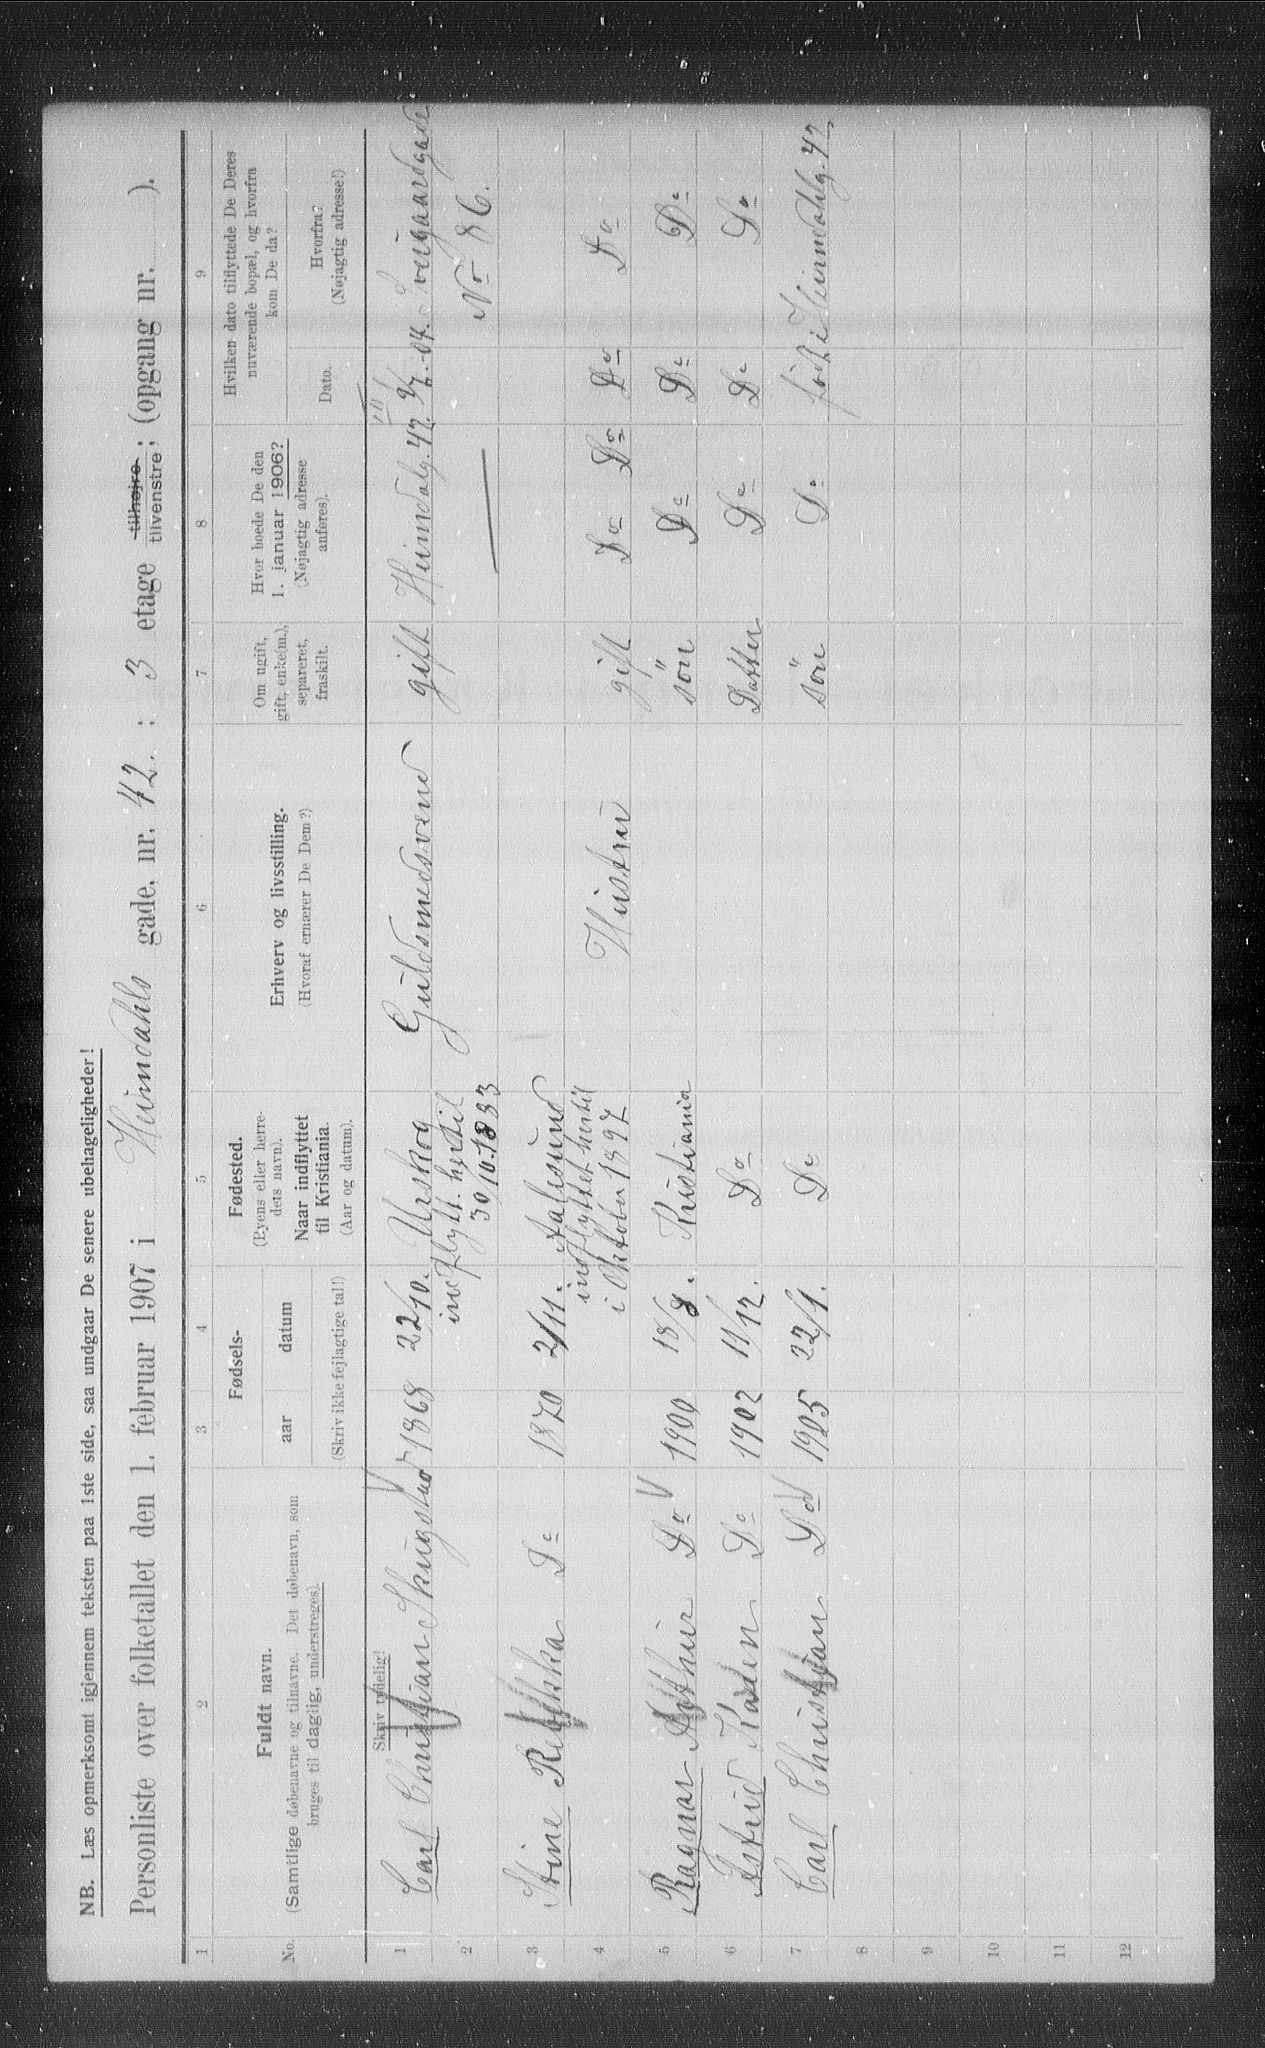 NB. Læs opmerksomt igjennem teksten paa 1ste side, saa undgaar De senere ubehageligheder!
Personliste over folketallet den 1. februar 1907 i Heimdahls gade, nr. 42. : 3 etage tilhøjre tilvenstre ; (opgang nr. ).
1 2 3 4 5 6 7 8 9
No.
Fuldt navn.
(Samtlige døbenavne og tilnavne. Det døbenavn, som
bruges til daglig, understreges).
Fødsels-
aar datum
(Skriv ikke fejlagtige tal!)
Fødested.
(Byens eller herre-
dets navn).
Naar indflyttet
til Kristiania.
(Aar og datum).
Erhverv og livsstilling.
(Hvoraf ernærer De Dem?)
Om ugift,
gift, enke(m.),
separeret,
fraskilt.
Hvor boede De den
1. januar 1906?
(Nøjagtig adresse
anføres).
Hvilken dato tilflyttede De Deres
nuværende bopæl, og hvorfra
kom De da?
Dato.
Hvorfra?
(Nøjagtig adresse!)
Skriv tydelig!
1 Carl Christian Skugstad 1868 22/10. Urskog Guldsmedsvend gift Heimdalg. 42. -04. Sveigaardgade
2 indflytt. hertil No 86.
30/10.1883
3 Stine Rebekka Do 1870 2/11. Aalesund
4 indflyttet hertil Hustru gift Do Do Do Do
i Oktober 1897
5 Ragnar Arthur Do 1900 18/8. Kristiania søn Do Do Do
6 Astrid Karen Do 1902 11/12. Do Datter Do Do Do
7 Carl Christian Do 1905 22/1. Do søn Do født i Heimdahlg. 42.
8
9
10
11
12